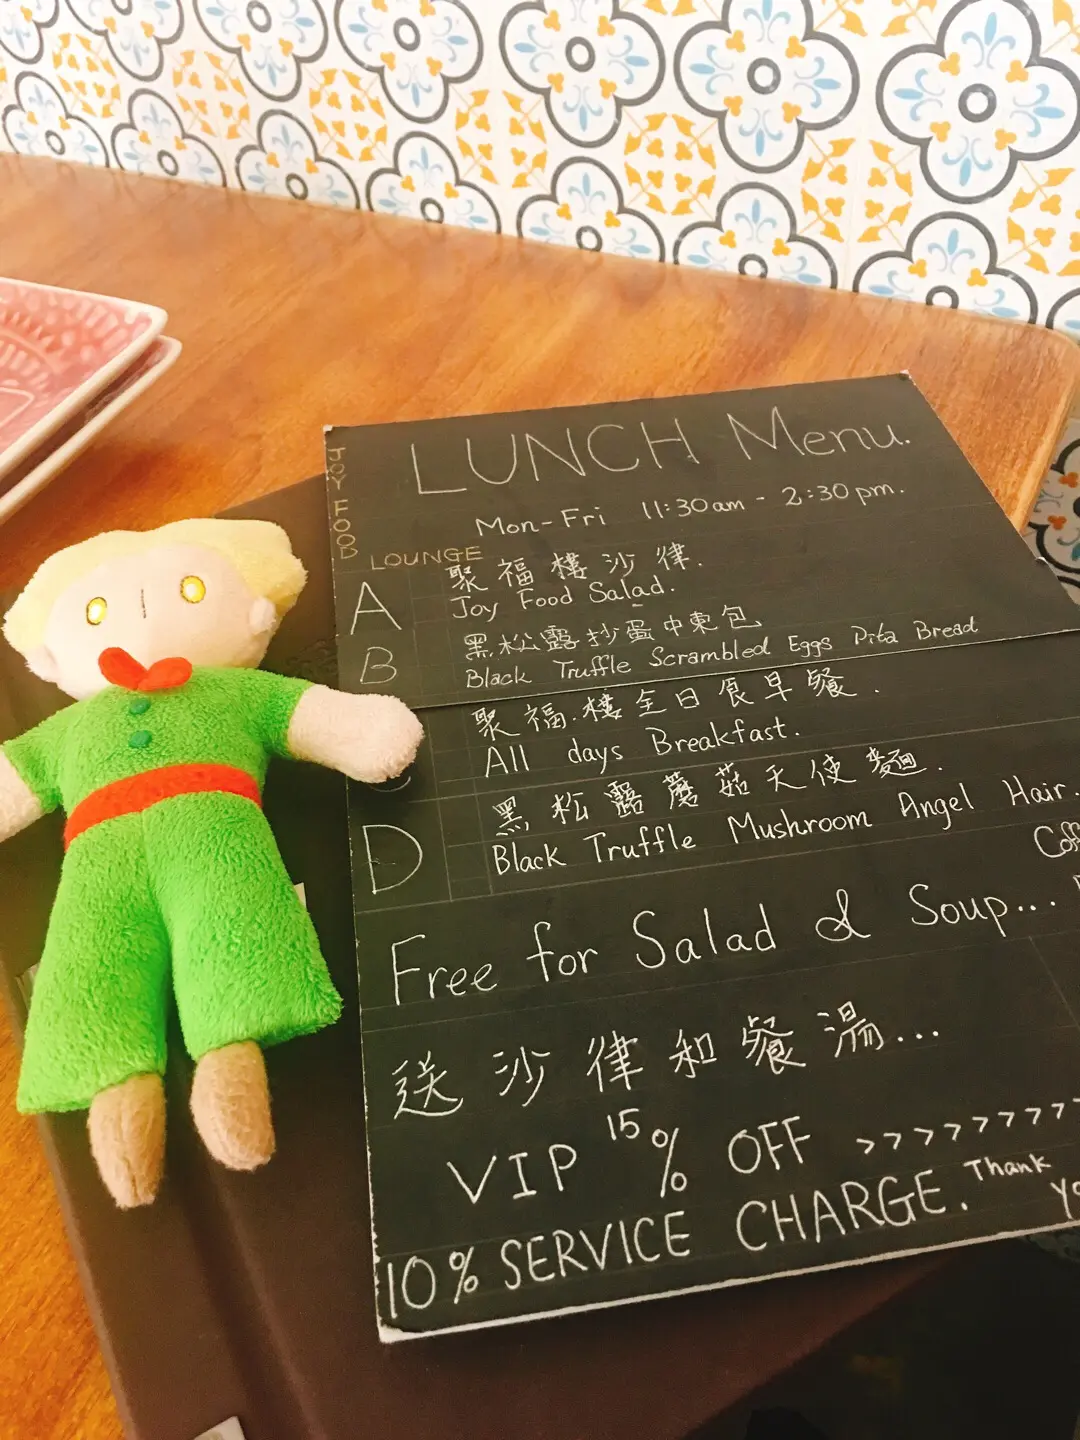 LUNCH Menu.
JOY FOOD
LOUNGE
Mon-Fri 11:30am - 2:30pm.
A
聚福樓沙律.
Joy Food Salad.
B
黑松露抄蛋中東包
Black Truffle Scrambled Eggs Pita Bread
聚福樓全日食早餐.
All days Breakfast.
D
黑松露蘑菇天使麵.
Black Truffle Mushroom Angel Hair.
Free for Salad & Soup...
送沙律和餐湯...
VIP 15% OFF >>>>>>>>>
10% SERVICE CHARGE. Thank